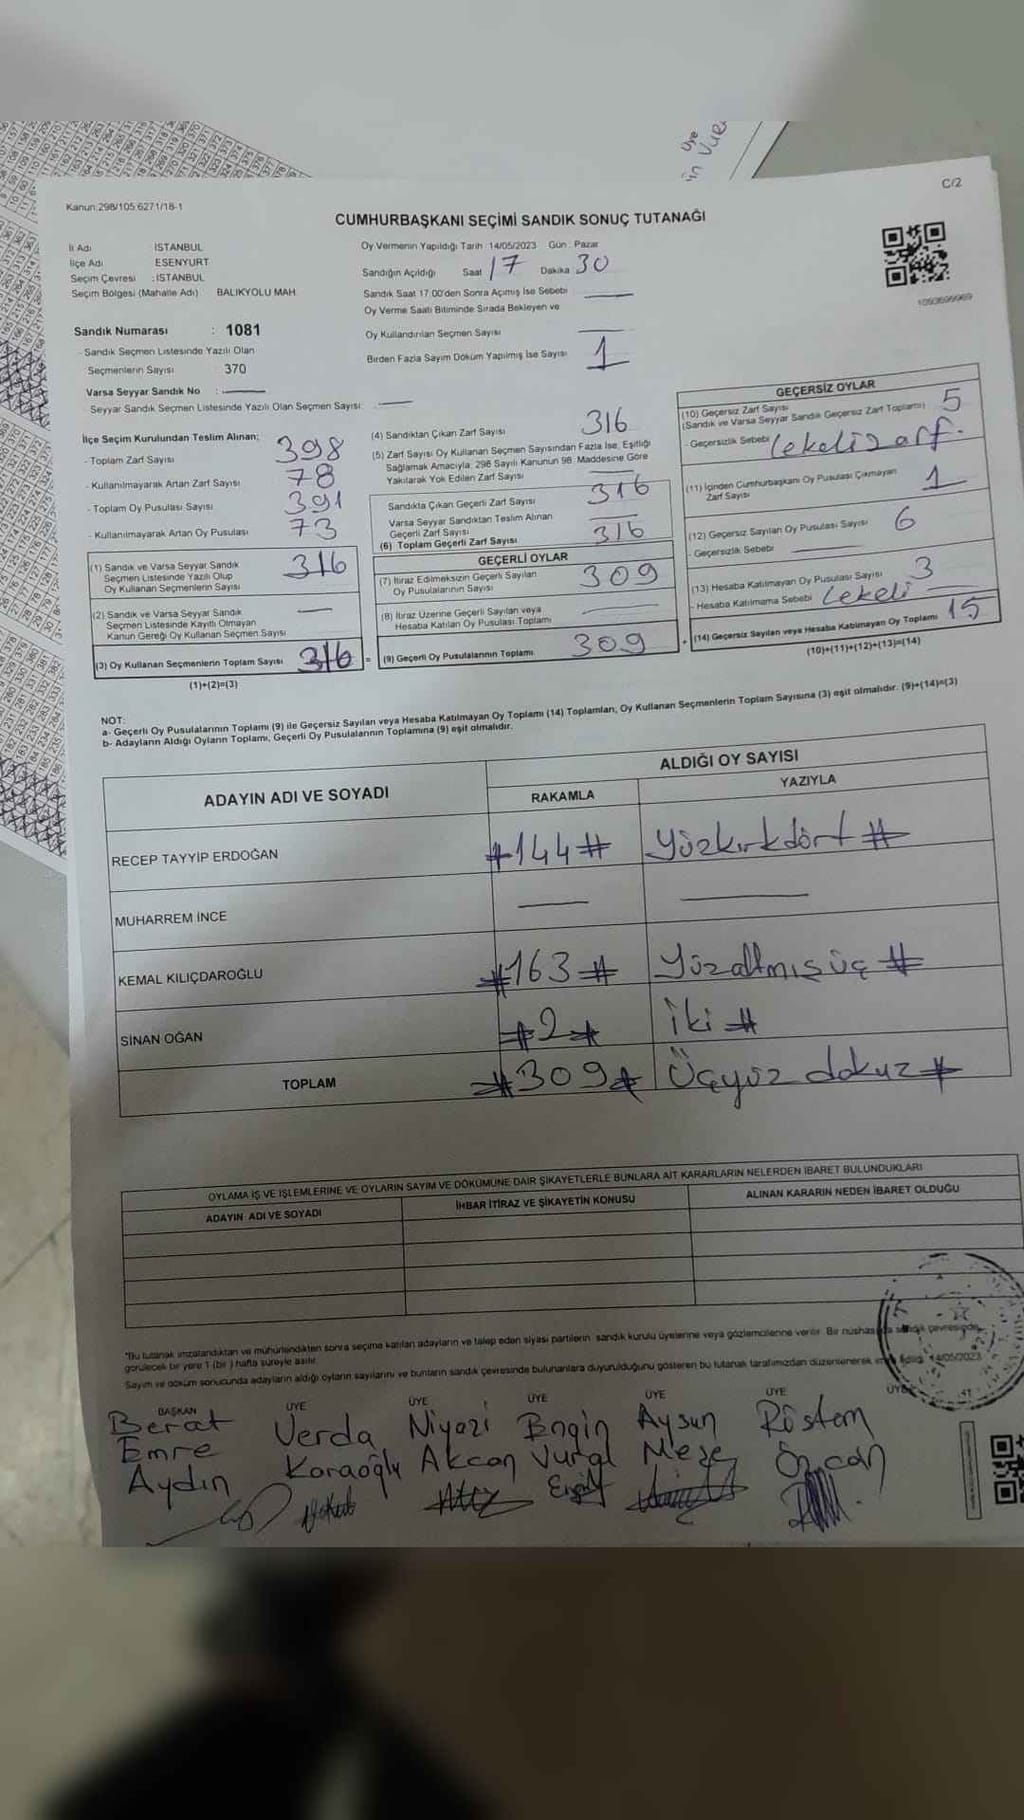 Üye
C/2
Kanun:298/105.6271/18-1
CUMHURBAŞKANI SEÇİMİ SANDIK SONUÇ TUTANAĞI
İl Adı İSTANBUL
İlçe Adı ESENYURT
Seçim Çevresi : İSTANBUL
Seçim Bölgesi (Mahalle Adı) BALIKYOLU MAH.
Sandık Numarası : 1081
- Sandık Seçmen Listesinde Yazılı Olan
Seçmenlerin Sayısı 370
Varsa Seyyar Sandık No :
- Seyyar Sandık Seçmen Listesinde Yazılı Olan Seçmen Sayısı:
Oy Vermenin Yapıldığı Tarih 14/05/2023 Gün : Pazar
Sandığın Açıldığı Saat 17 Dakika 30
Sandık Saat 17.00'den Sonra Açılmış İse Sebebi
Oy Verme Saati Bitiminde Sırada Bekleyen ve
Oy Kullandırılan Seçmen Sayısı
Birden Fazla Sayım Döküm Yapılmış İse Sayısı 1
1093696969
İlçe Seçim Kurulundan Teslim Alınan;
- Toplam Zarf Sayısı 398
- Kullanılmayarak Artan Zarf Sayısı 78
- Toplam Oy Pusulası Sayısı 391
- Kullanılmayarak Artan Oy Pusulası 73
(1) Sandık ve Varsa Seyyar Sandık
Seçmen Listesinde Yazılı Olup
Oy Kullanan Seçmenlerin Sayısı 316
(2) Sandık ve Varsa Seyyar Sandık
Seçmen Listesinde Kayıtlı Olmayan
Kanun Gereği Oy Kullanan Seçmen Sayısı
(3) Oy Kullanan Seçmenlerin Toplam Sayısı 316 =
(1)+(2)=(3)
(4) Sandıktan Çıkan Zarf Sayısı 316
(5) Zarf Sayısı Oy Kullanan Seçmen Sayısından Fazla İse, Eşitliği
Sağlamak Amacıyla; 298 Sayılı Kanunun 98. Maddesine Göre
Yakılarak Yok Edilen Zarf Sayısı
Sandıkta Çıkan Geçerli Zarf Sayısı 316
Varsa Seyyar Sandıktan Teslim Alınan
Geçerli Zarf Sayısı
(6) Toplam Geçerli Zarf Sayısı 316
GEÇERLİ OYLAR
(7) İtiraz Edilmeksizin Geçerli Sayılan
Oy Pusulalarının Sayısı 309
(8) İtiraz Üzerine Geçerli Sayılan veya
Hesaba Katılan Oy Pusulası Toplamı
(9) Geçerli Oy Pusulalarının Toplamı 309 +
GEÇERSİZ OYLAR
(10) Geçersiz Zarf Sayısı 5
(Sandık ve Varsa Seyyar Sandık Geçersiz Zarf Toplamı)
- Geçersizlik Sebebi lekeli zarf.
(11) İçinden Cumhurbaşkanı Oy Pusulası Çıkmayan
Zarf Sayısı 1
(12) Geçersiz Sayılan Oy Pusulası Sayısı 6
- Geçersizlik Sebebi
(13) Hesaba Katılmayan Oy Pusulası Sayısı 3
- Hesaba Katılmama Sebebi Lekeli
(14) Geçersiz Sayılan veya Hesaba Katılmayan Oy Toplamı 15
(10)+(11)+(12)+(13)=(14)
NOT:
a- Geçerli Oy Pusulalarının Toplamı (9) ile Geçersiz Sayılan veya Hesaba Katılmayan Oy Toplamı (14) Toplamları, Oy Kullanan Seçmenlerin Toplam Sayısına (3) eşit olmalıdır. (9)+(14)=(3)
b- Adayların Aldığı Oyların Toplamı, Geçerli Oy Pusulalarının Toplamına (9) eşit olmalıdır.
ADAYIN ADI VE SOYADI
ALDIĞI OY SAYISI
RAKAMLA
YAZIYLA
RECEP TAYYİP ERDOĞAN #144# Yüzkırkdört #
MUHARREM İNCE
KEMAL KILIÇDAROĞLU #163# Yüzaltmışüç #
SİNAN OĞAN #2# İki #
TOPLAM #309# Üçyüz dokuz #
OYLAMA İŞ VE İŞLEMLERİNE VE OYLARIN SAYIM VE DÖKÜMÜNE DAİR ŞİKAYETLERLE BUNLARA AİT KARARLARIN NELERDEN İBARET BULUNDUKLARI
ADAYIN ADI VE SOYADI
İHBAR İTİRAZ VE ŞİKAYETİN KONUSU
ALINAN KARARIN NEDEN İBARET OLDUĞU
*Bu tutanak imzalandıktan ve mühürlendikten sonra seçime katılan adayların ve talep eden siyasi partilerin sandık kurulu üyelerine veya gözlemcilerine verilir. Bir nüshası da sandık çevresinde
görülecek bir yere 1 (bir) hafta süreyle asılır.
Sayım ve döküm sonucunda adayların aldığı oyların sayılarını ve bunların sandık çevresinde bulunanlara duyurulduğunu gösteren bu tutanak tarafımızdan düzenlenerek imza edildi. 14/05/2023
BAŞKAN ÜYE ÜYE ÜYE ÜYE ÜYE ÜYE
Berat Emre Aydın
Verda Karaoğlu
Niyazi Akcan
Engin Vural
Aysun Meşe
Rüstem Özcan